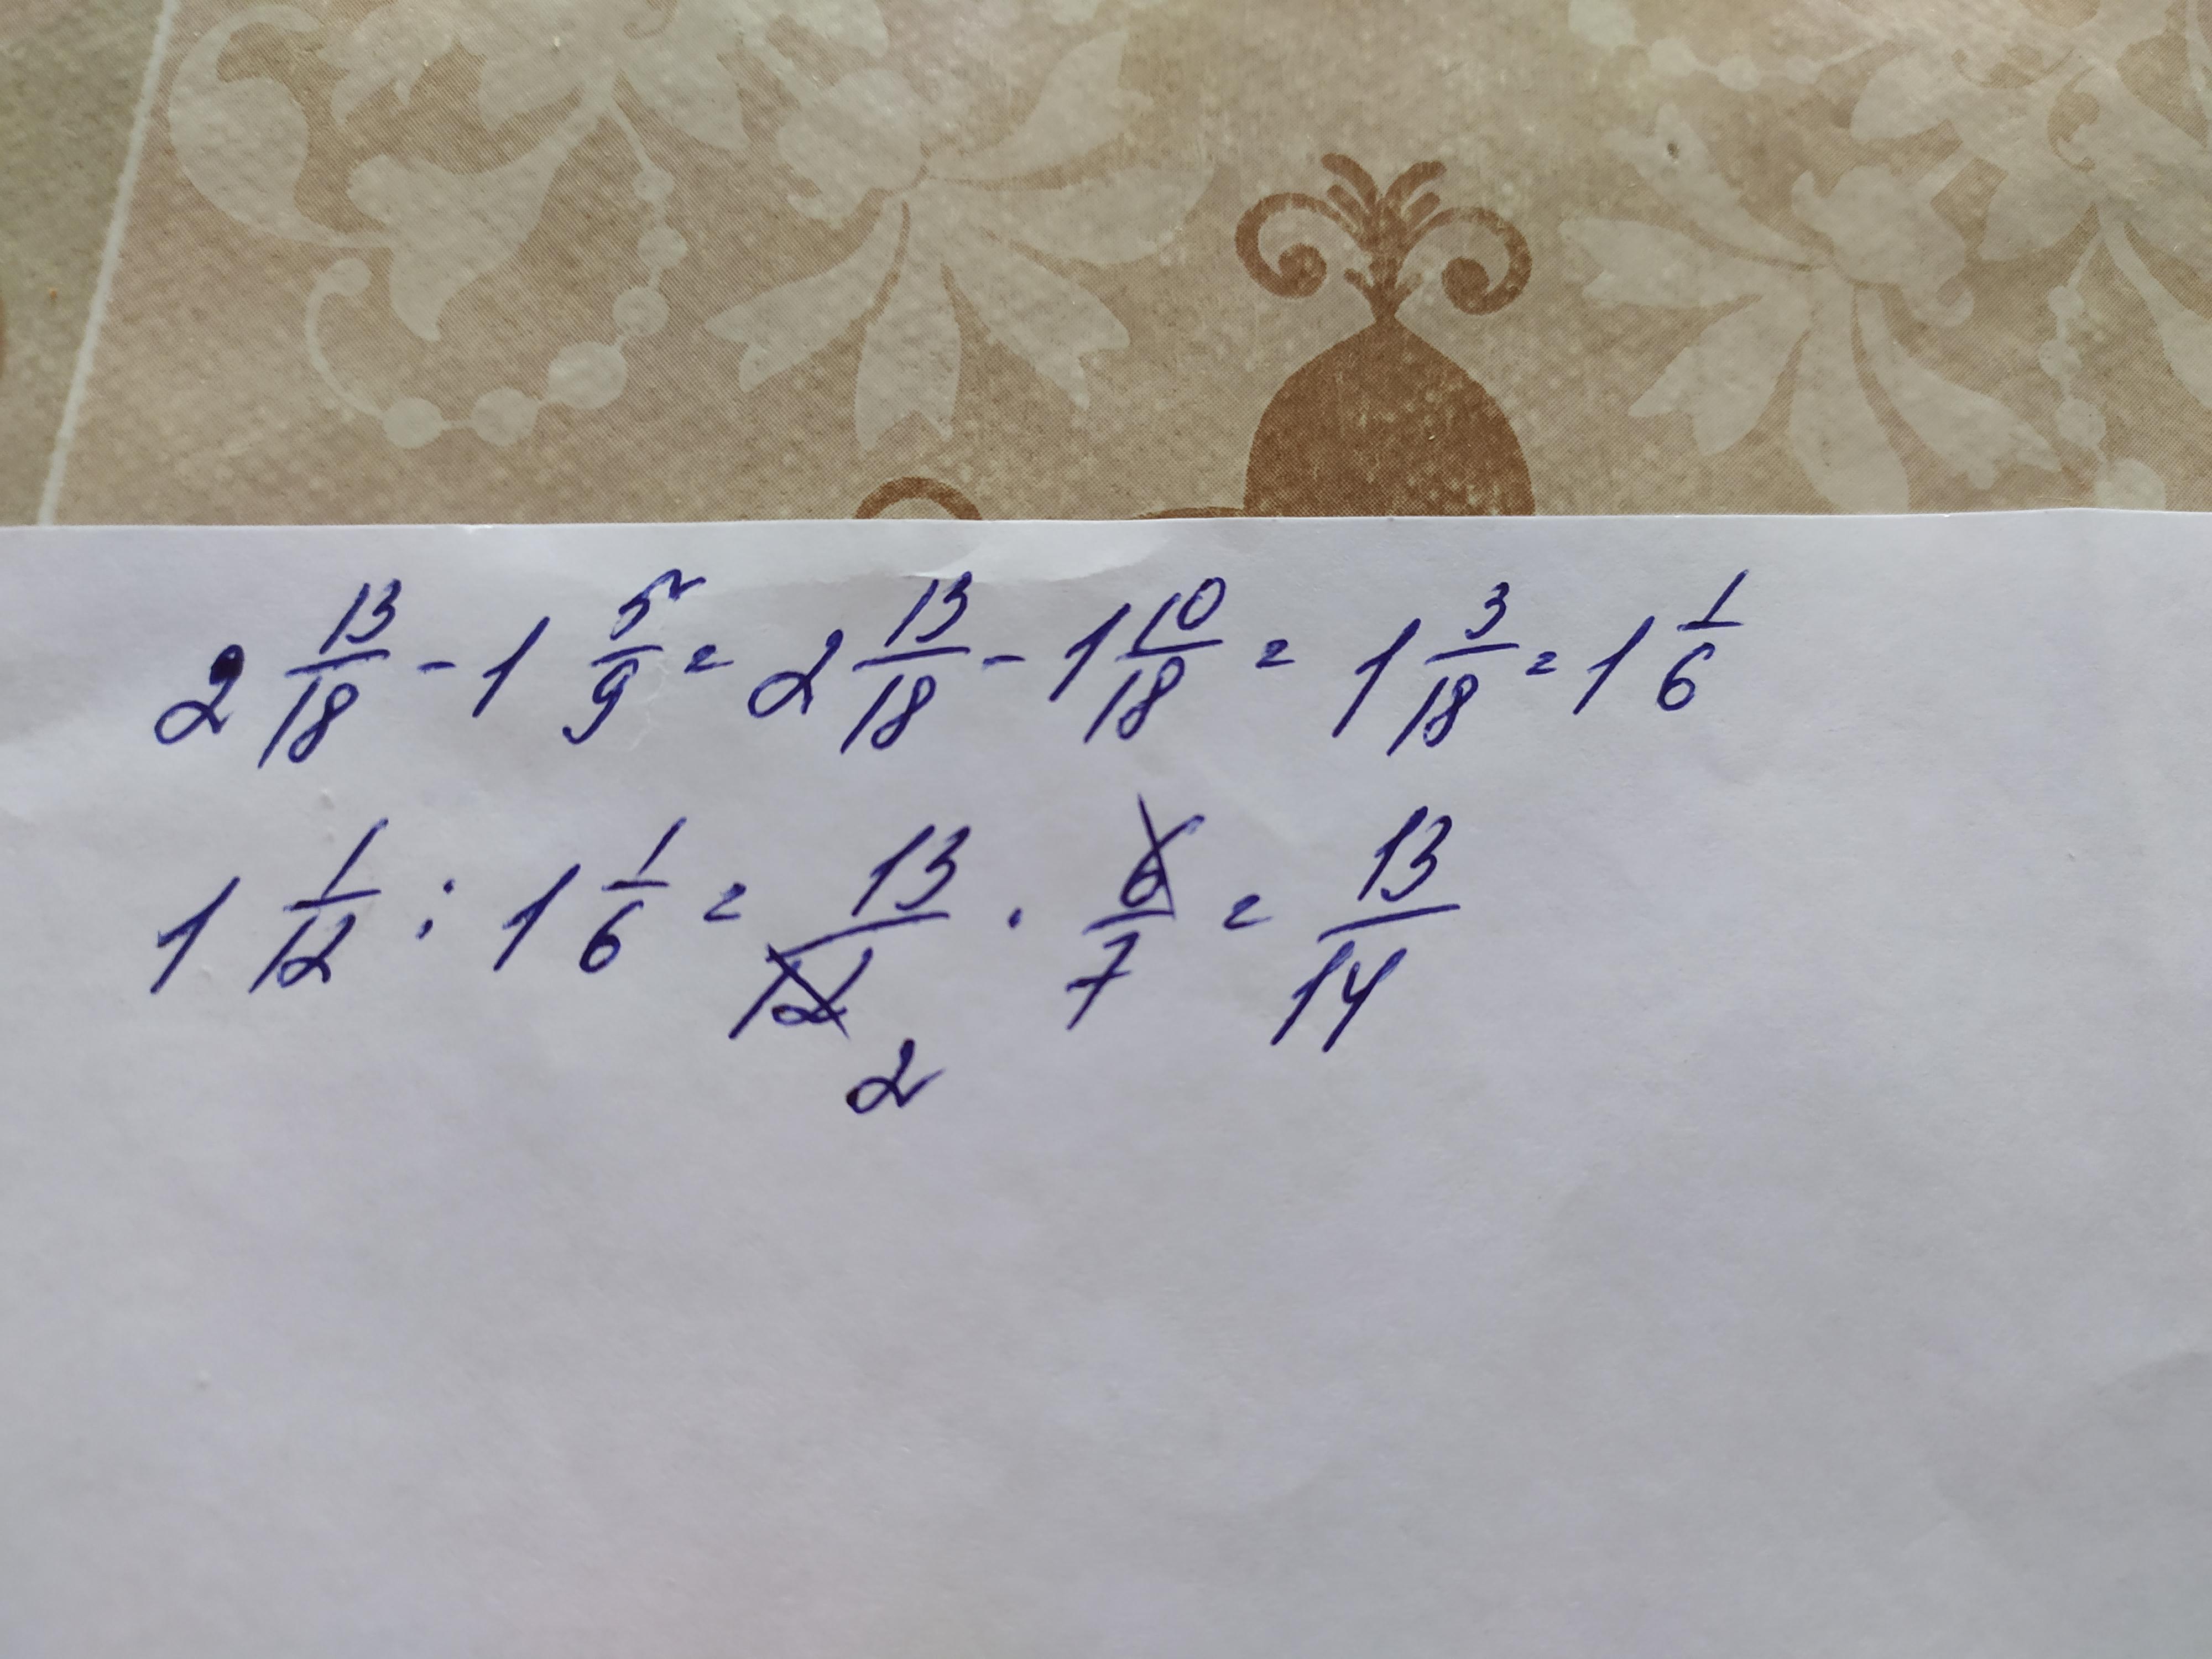 2 13/18 - 1 5/9 = 2 13/18 - 1 10/18 = 1 3/18 = 1 1/6
1 1/12 : 1 1/6 = 13/12 · 6/7 = 13/14
2